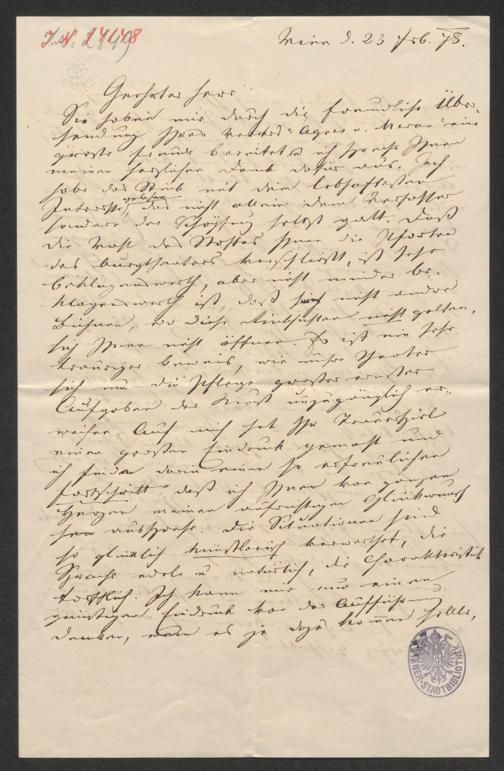 Wien d. 23 Feb. 78.
Geehrter Herr
Sie haben mir durch die freundliche Über-
sendung Ihres "Agnes v. Meran" eine
große Freude bereitet u ich spreche Ihnen
meinen herzlichen Dank dafür aus. Ich
habe das Stück mit dem lebhaftesten
Interesse gelesen, das nicht allein dem Verfasser
sondern der Schöpfung selbst galt. Daß
die Wahl des Stoffes Ihnen die Pforten
des Burgtheaters verschließt, ist sehr
beklagenswerth, aber nicht minder be-
klagenswerth ist, daß sich nicht andre
Bühnen, wo diese Rücksichten nicht gelten,
sich Ihnen nicht öffnen. Es ist ein sehr
trauriger Beweis, wie unsre Theater
sich um die Pflege großer ernster
Aufgaben der Kunst unzugänglich er-
weisen. Auf mich hat Ihr Trauerspiel
einen großen Eindruck gemacht und
ich finde darin einen so erfreulichen
Fortschritt daß ich Ihnen von ganzem
Herzen meinen aufrichtigen Glückwunsch
ausspreche. Die Situationen sind
so glücklich künstlerisch verwerthet, die
Sprache edel u natürlich, die Charakteristik
trefflich. Ich kann mir nur einen
günstigen Eindruck von der Aufführung
denken, wenn es je dazu kommen sollte,
WIENER STADTBIBLIOTHEK